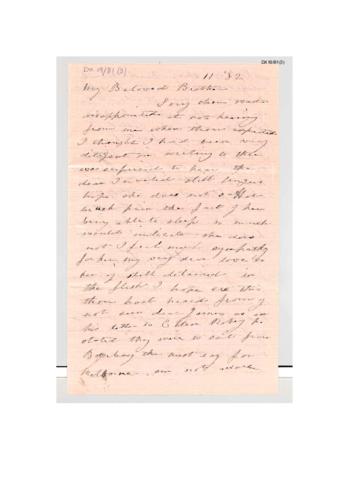 DX 19/81(3)
DX 19/81(3)
11 '82
My Beloved Brother
I only deem
disappointed at not hearing
from me when thou expected
I thought I had been very
diligent in writing to thee
was surprised to hear the
dear Invalid still lingers
hope she does not suffer
much pain the fact of her
being able to sleep so much
would indicate she does
not I feel much sympathy
for him my very dear love to
her if still detained in
the flesh I hope ere this
thou hast heard from if
not seen dear James as in
his letter to Ellen he
stated they were to sail from
Bombay the next day for
Melbourne am not